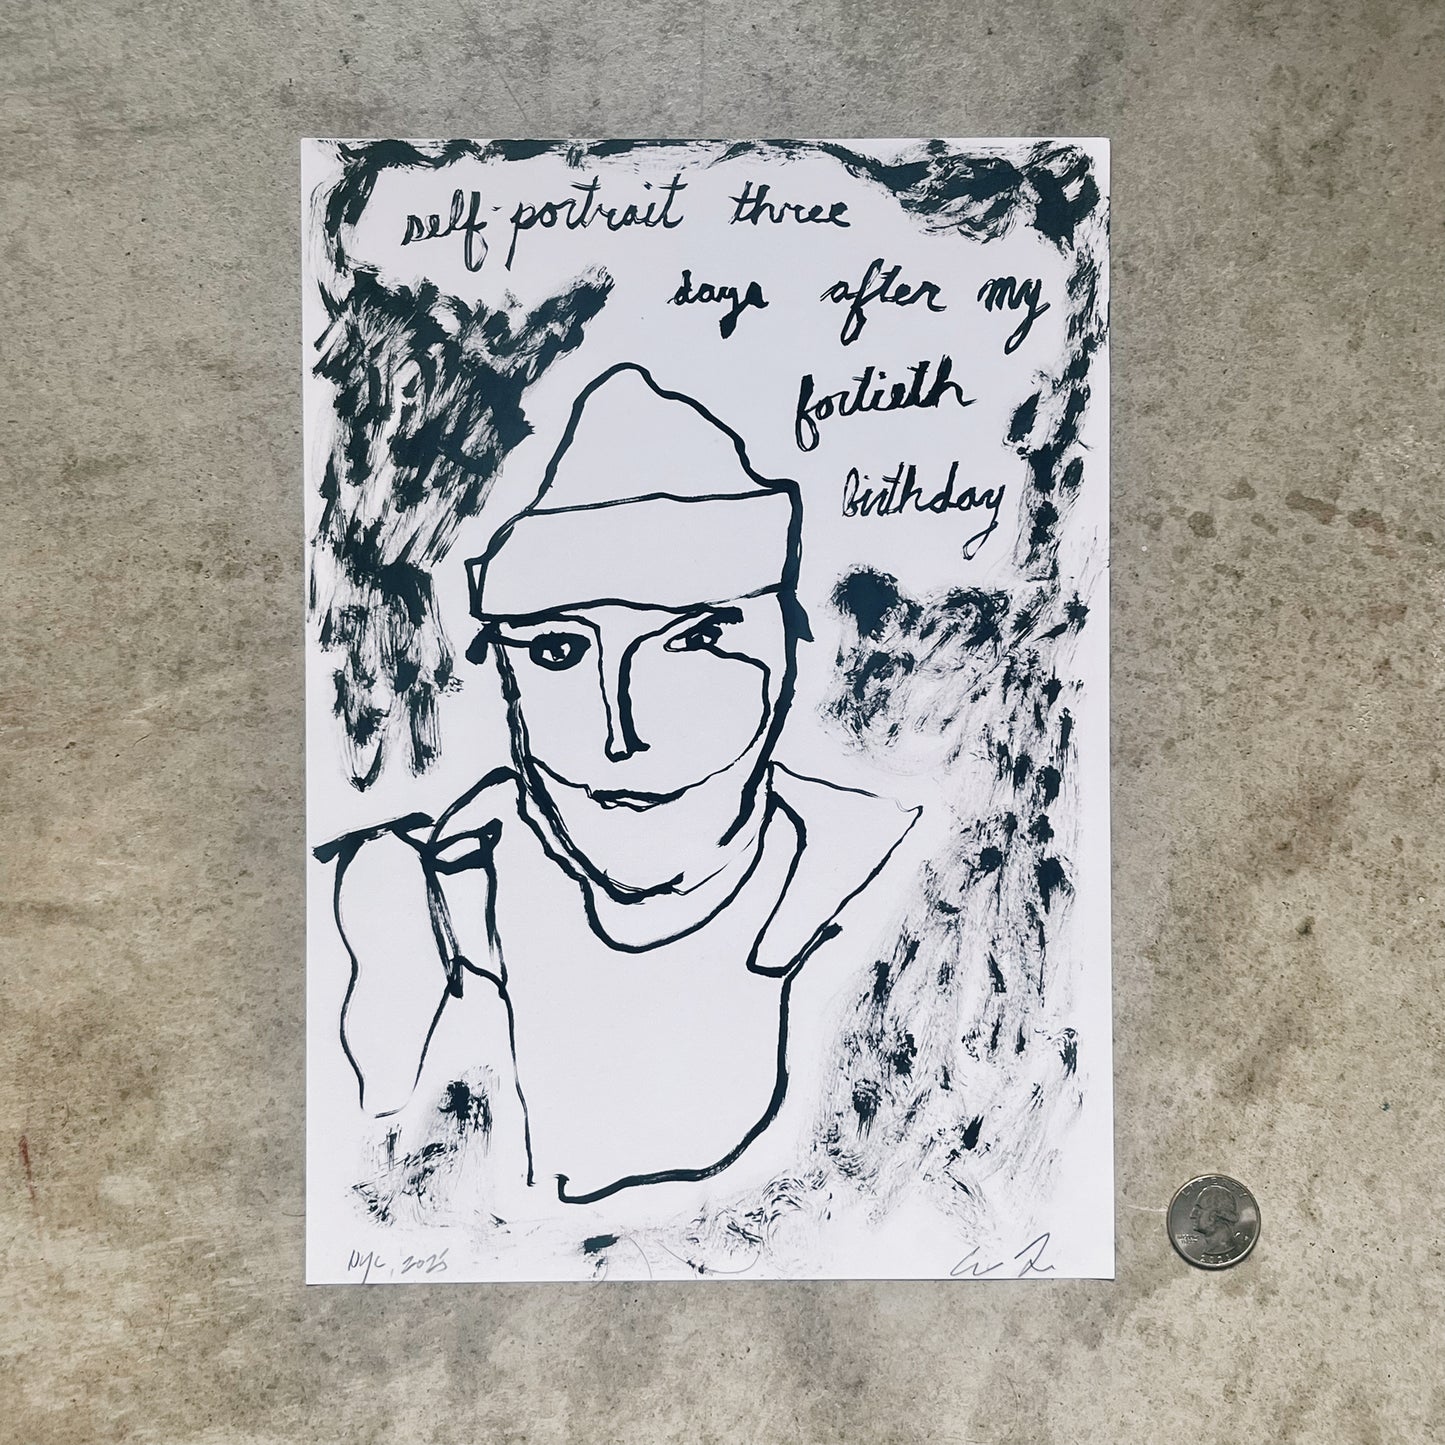 self-portrait three
days after my
fortieth
birthday
NYC, 2025